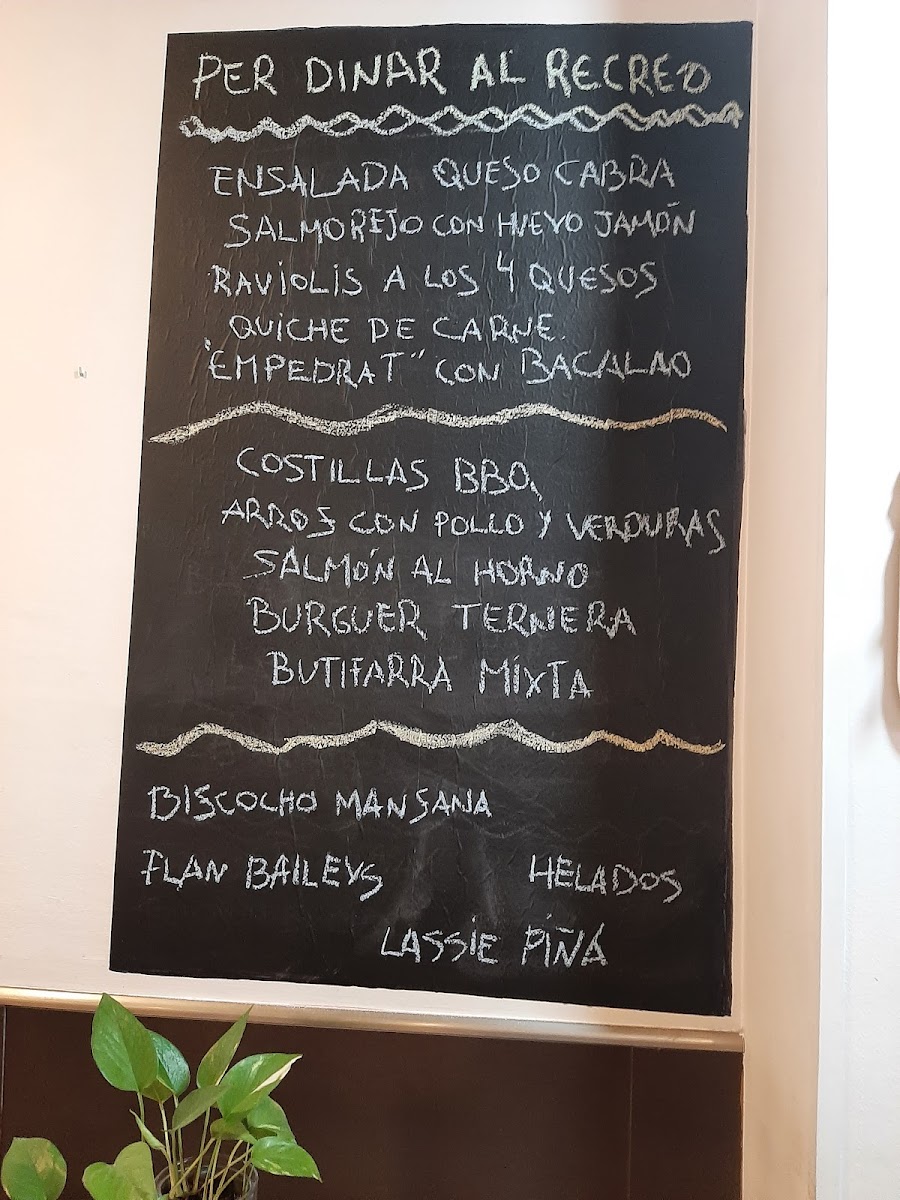 PER DINAR AL RECREO
ENSALADA QUESO CABRA
SALMOREJO CON HUEVO JAMÓN
RAVIOLIS A LOS 4 QUESOS
QUICHE DE CARNE.
"EMPEDRAT" CON BACALAO
COSTILLAS BBQ
ARROS CON POLLO Y VERDURAS
SALMÓN AL HORNO
BURGUER TERNERA
BUTIFARRA MIXTA
BISCOCHO MANSANA
FLAN BAILEYS HELADOS
LASSIE PIÑA